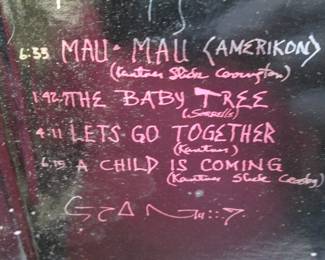 6:35 MAU·MAU (AMERIKON)
(Kantner Slick Covington)
1:42 THE BABY TREE
(Sorrels)
4:11 LET'S GO TOGETHER
(Kantner)
A CHILD IS COMING
(Kantner Slick Crosby)